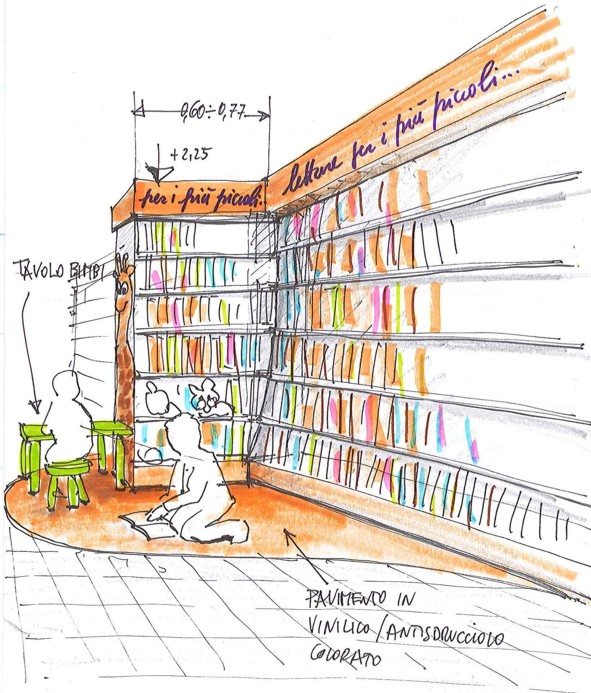 0,60÷0,77
+2,25
per i più piccoli..
letture per i più piccoli...
TAVOLO BIMBI
PAVIMENTO IN
VINILICO/ANTISDRUCCIOLO
COLORATO